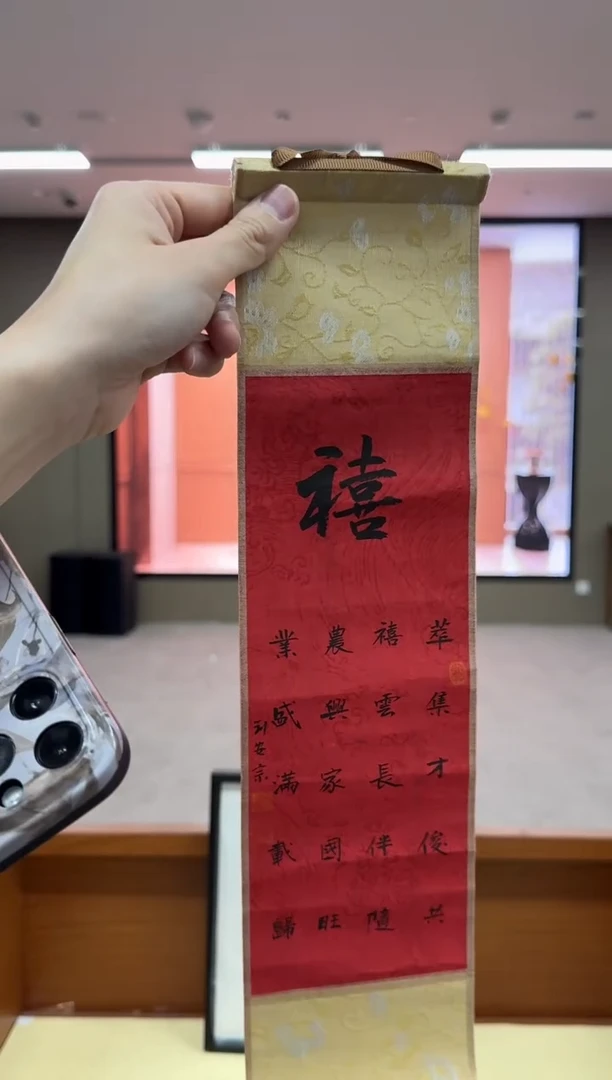 禧
萃集才俊共
禧雲長伴隨
農興家國旺
業盛滿載歸
安宗